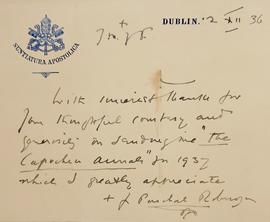 NUNTIATURA APOSTOLICA
DUBLIN. 12 XII 36
With sincerest thanks for
your thoughtful courtesy and
generosity in sending me "The
Capuchin Annual" for 1937
which I greatly appreciate
+ Paschal Robinson